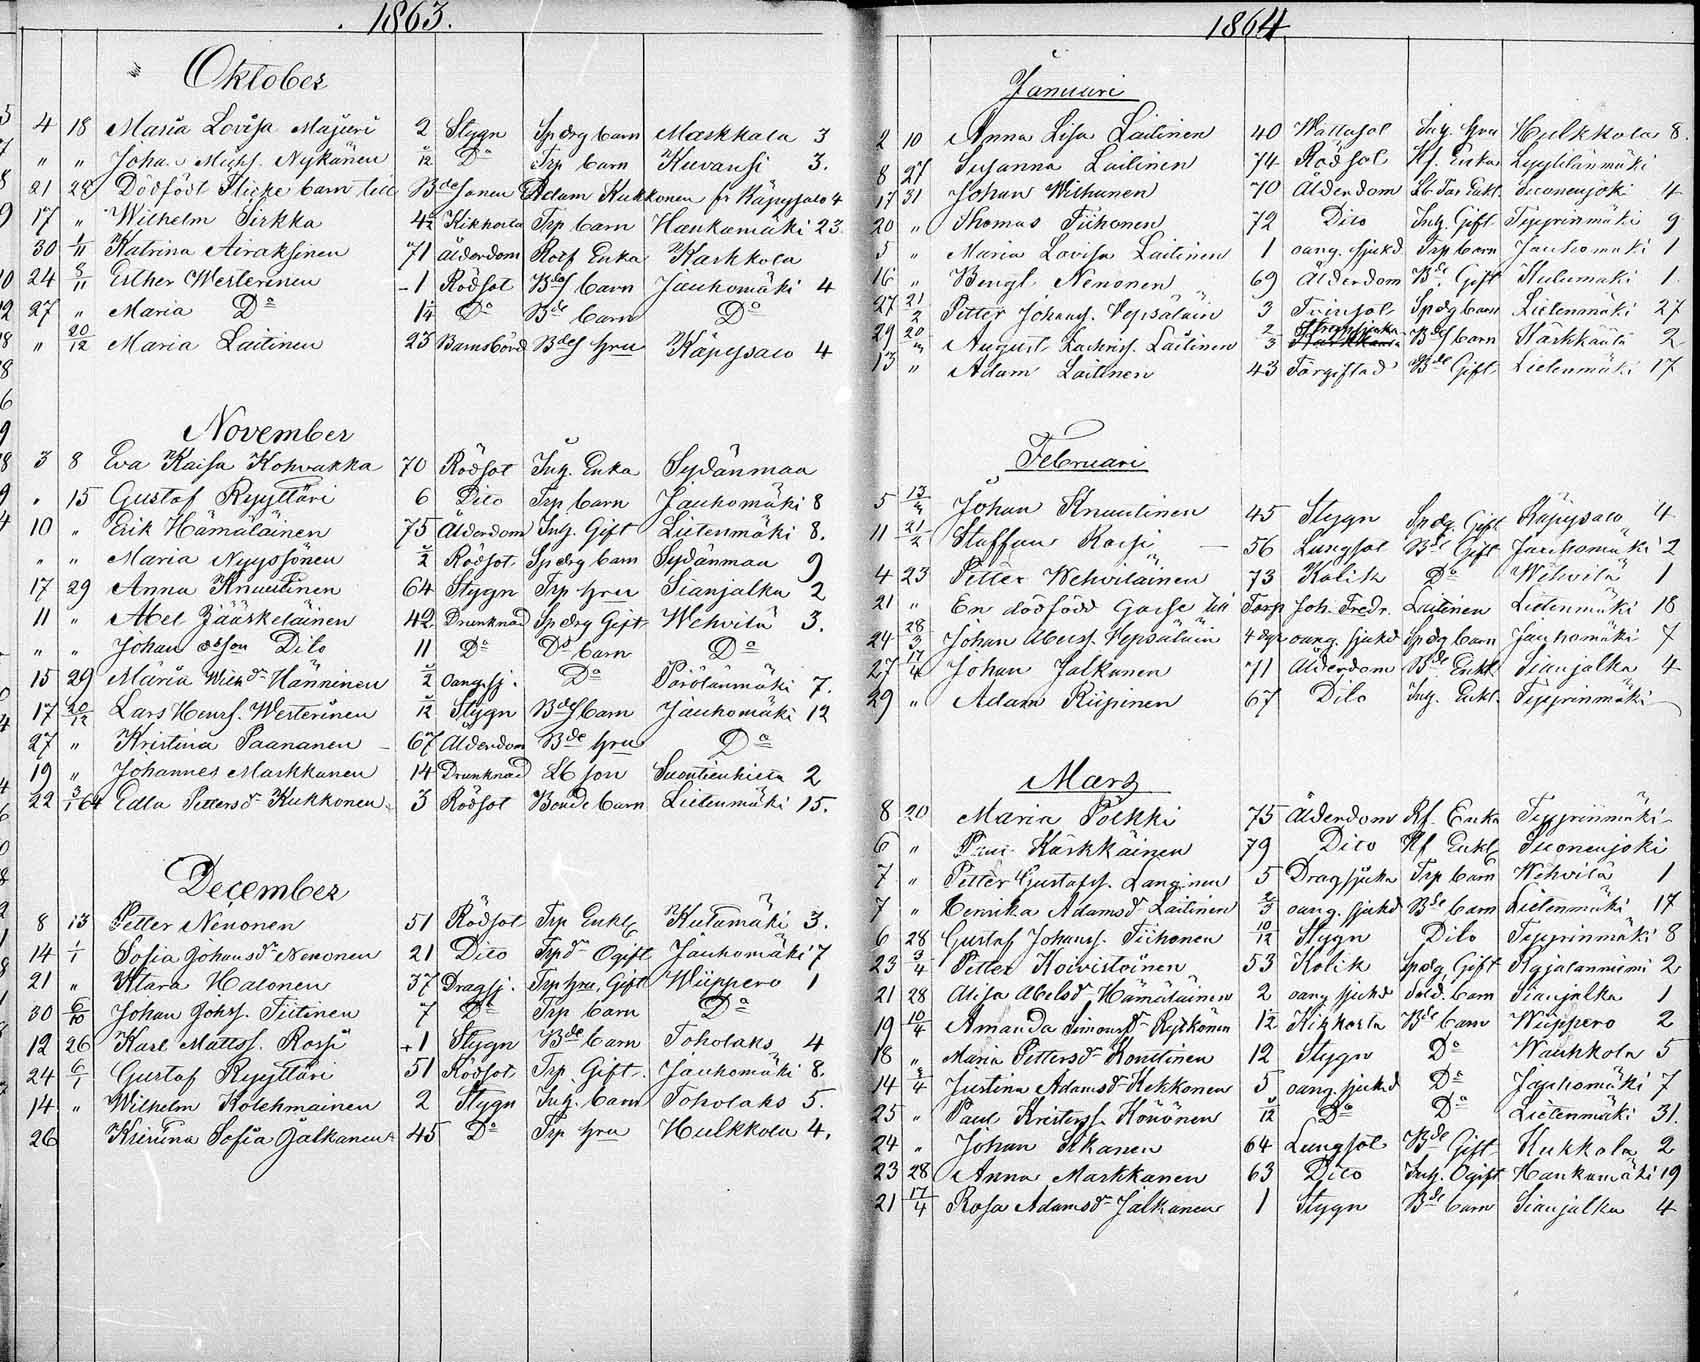 1863.
Oktober
4 18 Maria Lovisa Majuri 2 Stygn Spdrg barn Markkala 3
" " Johan Nykänen 12 Do Trp barn Kuvansi 3.
21 22 Dödfödt Flicke barn till Bde Sonen Adam Kukkonen fr Käpysalo 4
17 " Wilhelm Sirkka 4½ Kikhosta Trp barn Hankamäki 23.
30 1/11 Katrina Airaksinen 71 ålderdom Rotf Enka Karkkola
24 8/11 Esther Westerinen 1 Rödsot Bdes barn Jauhomäki 4
27 " Maria Do 1¼ Do Bde barn Do
" 20/12 Maria Laitinen 23 Barnsbörd Bdes hru Käpysalo 4
November
3 8 Eva Kaisa Kohvakka 70 Rödsot Inh. Enka Sydänmaa
" 15 Gustaf Ryyttäri 6 Dito Trp barn Jauhomäki 8
10 " Erik Hämäläinen 75 Ålderdom Inh. Gift Lietenmäki 8.
" " Maria Nyyssönen 2 Rödsot Spdrg barn Sydänmaa 9
17 29 Anna Knuutinen 64 Stygn Trp hru Sianjalka 2
11 " Abel Jääskeläinen 42 Drunknad Spdrg Gift Wehvilä 3.
" " Johan Dito 11 Do Do barn Do
15 29 Maria Wilhdr Hänninen 2 oang.sj. Do Pörölänmäki 7.
17 20/12 Lars Henrs. Westerinen 12 Stygn Bdes barn Jauhomäki 12
27 " Kristina Paananen 67 Ålderdom Bde hru Do
19 " Johannes Markkanen 14 Drunknad Lb son 2
22 3/1 64 Edla Pettersdr Kukkonen 3 Rödsot Bonde barn Lietenmäki 15.
December
8 13 Petter Nenonen 51 Rödsot Trp Enkl Kutumäki 3.
14 1/1 Sofia Johansdr Nenonen 21 Dito Trpdr Ogift Jauhomäki 7
21 " Klara Halonen 37 Dragsj. Trp hru, Gift Wiippero 1
30 6/10 Johan Johs. Tiitinen 7 Do Trp barn Do
12 26 Karl Mattss. Rossi 1 Stygn Bde barn Toholaks 4
24 6/1 Gustaf Ryyttäri 51 Rödsot Trp Gift Jauhomäki 8.
14 " Wilhelm Kolehmainen 2 Stygn Inh. barn Toholaks 5.
26 Kristina Sofia Jalkanen 45 Do Trp hru Hulkkola 4.
1864
Januari
2 10 Anna Lisa Laitinen 40 Wattusot Inh. hru Hulkkola 8.
8 27 Susanna Laitinen 74 Rödsot Rf. Enka Lyytilänmäki
17 31 Johan Wihanen 70 Ålderdom Enkl. Suonenjoki 4
20 " Thomas Tiihonen 72 Dito Inh. Gift Tyyrinmäki 9
5 " Maria Lovisa Laitinen 1 oang. sjukd Trp barn Jauhomäki 1
16 " Bengt Nenonen 69 Ålderdom Bde Gift Kutumäki 1
27 21/2 Petter Johans. Vepsäläin 3 Tvinsot Spdg barn Lietenmäki 27
29 20 August Zachriss. Laitinen 2/3 Bdes barn Kärkkäälä 2
13 " Adam Laitinen 43 Förgiftad Bde Gift Lietenmäki 17
Februari
5 13 Johan Knuutinen 45 Stygn Spdg. Gift Käpysalo 4
11 21/2 Staffan Rossi 56 Lungsot Bde Gift Jauhomäki 2
4 23 Petter Wehviläinen 73 Kolik Do Wehvilä 1
21 " En dödfödd Gosse till Torp Joh. Fredr. Laitinen Lietenmäki 18
24 28/3 Johan Abrss. Vepsäläin 4 dgr oang. sjukd Spdg barn Jauhomäki 7
27 17/4 Johan Jalkanen 71 Ålderdom Bde Enkl. Sianjalka 4
29 " Adam Riipinen 67 Dito Inh. Enkl. Tyyrinmäki
Mars
8 20 Maria Pölkki 75 Ålderdom Rf. Enka Tyyrinmäki
6 " Kärkkäinen 79 Dito Rf Enkl Suonenjoki
7 " Petter Gustafs. Langinen 5 Dragsjuka Trp barn Wehvilä 1
7 " Henrika Adamsd Laitinen 2/3 oang. sjukd Bde barn Lietenmäki 17
6 28 Gustaf Johanss. Tiihonen 10/12 Stygn Dito Tyyrinmäki 8
23 3/4 Petter Koivistoinen 53 Kolik Spdg Gift Rajalanniemi 2
21 28 Alisa Abelsdr Hämäläinen 2 oang sjukd Sold. barn Sianjalka 1
19 10/4 Amanda Simonsdr Ryökönen 1½ Kikhosta Bde barn Wiippero 2
18 " Maria Pettersdr Konttinen 12 Stygn Do Wauhkola 5
14 4 Justina Adamsdr Kekkonen 5 oang sjukd Do Jauhomäki 7
25 " Paul Kristerss. Könönen 12 Do Do Lietenmäki 31.
24 " Johan Ikanen 64 Lungsot Bde Gift Kukkola 2
23 28 Anna Markkanen 63 Dito Inh. Ogift Hankamäki 19
21 17/4 Rosa Adamsdr Jalkanen 1 Stygn Bde barn Sianjalka 4